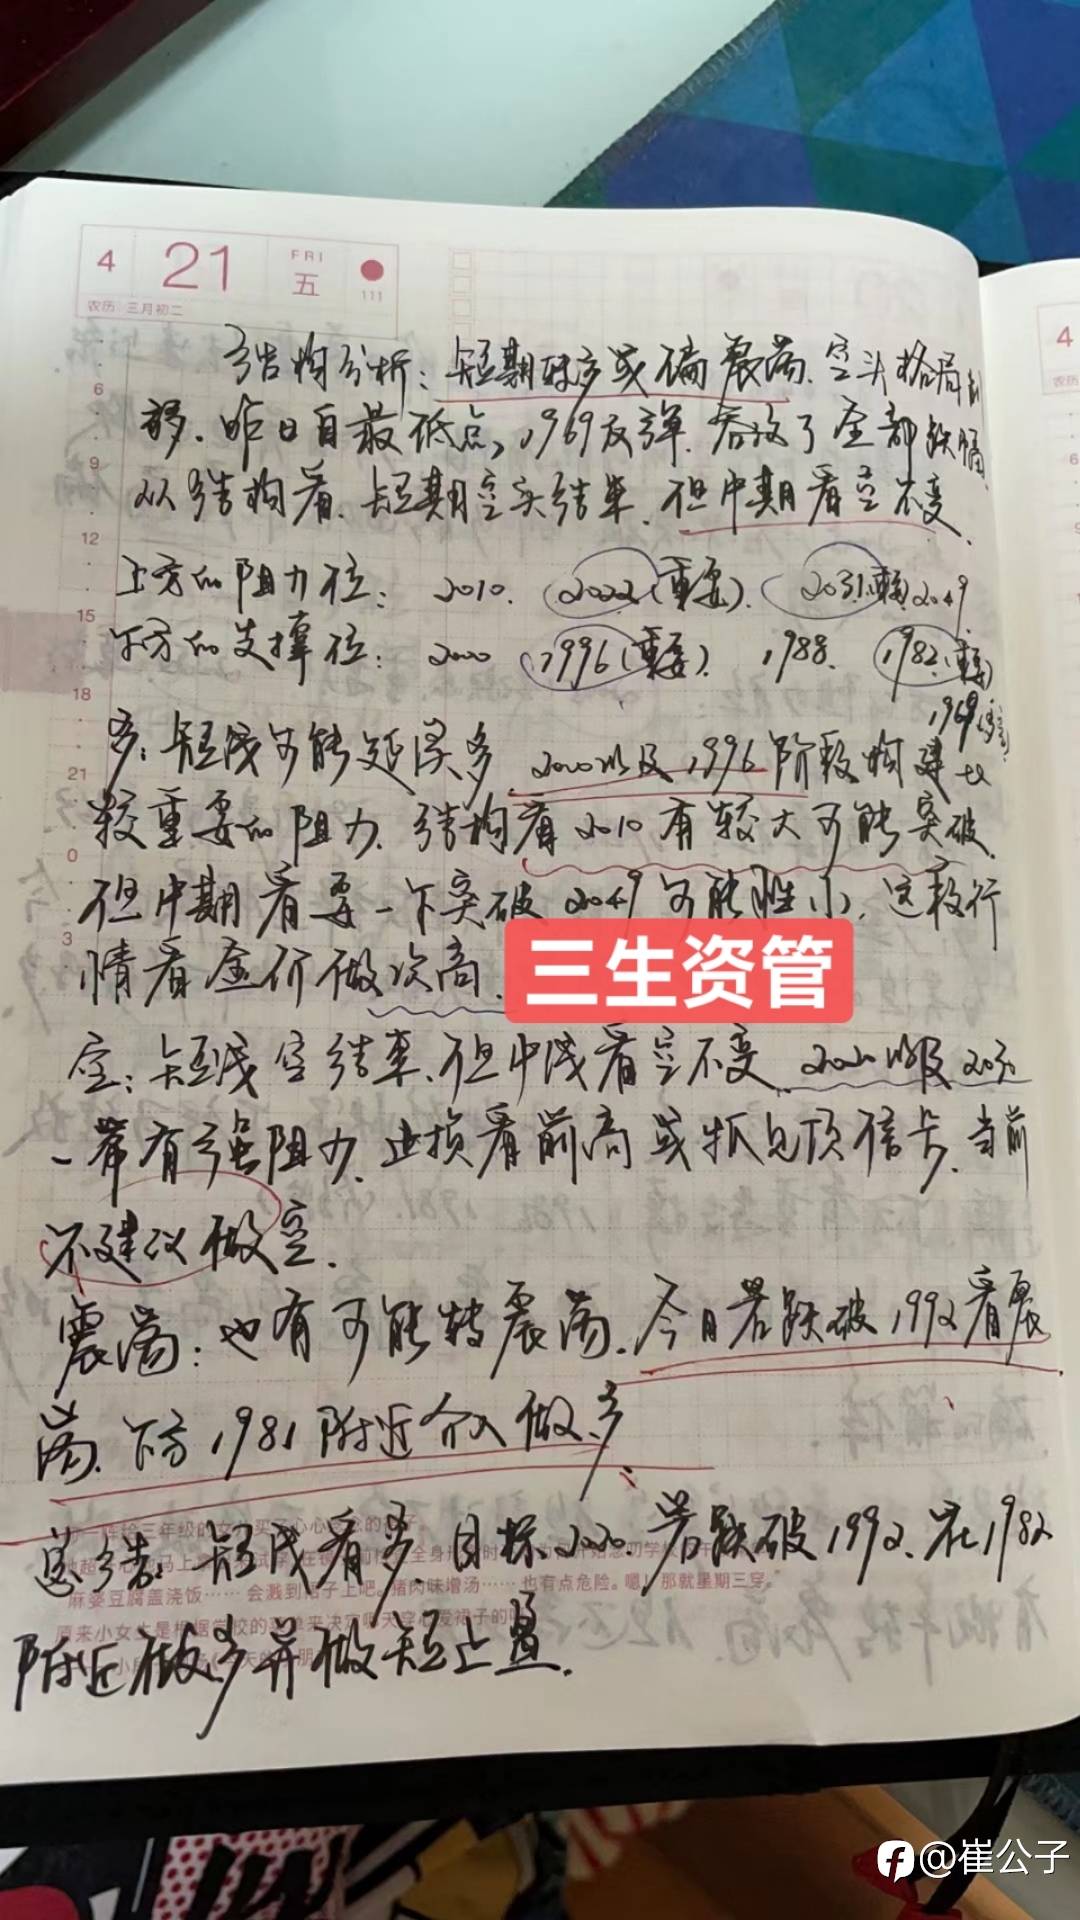 4 21 FRI 五 111
农历 三月初二
结构分析:短期转多或偏震荡.空头格局
移.昨日自最低点,1969反弹.吞没了全部跌幅
从结构看.短期空头结束.但中期看空不变.
上方的阻力位: 2010. 2022(重要). 2031(重要) 2049
下方的支撑位: 2000 1996(重要). 1988. 1982.(重要)
1969(重要)
多:短线可能延续多.2000以及1996阶段构建
较重要的阻力.结构看2010有较大可能突破.
但中期看要一下突破2049可能性小.这段行
情看金价做次高.
三生资管
空:短线空结束.但中线看空不变.
一带有强阻力.止损看前高或抓见顶信号.当前
不建议做空.
震荡:也有可能转震荡.今日若跌破1992看震
荡.下方1981附近介入做多.
总结:短线看多.目标2020.若跌破1992.在1982
附近做多并做短止盈.
6
9
12
15
18
21
0
3
4
农历
6
9
麻婆豆腐盖浇饭…… 会溅到裙子上吧。猪肉味增汤…… 也有点危险。嗯!那就星期三穿。”
@崔公子